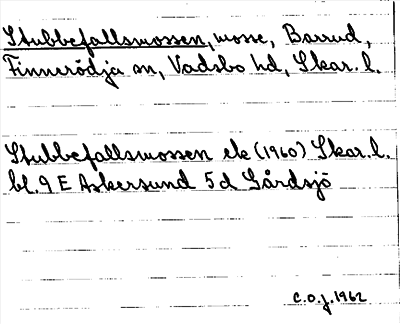 Stubbefallsmossen, mosse, Barrud,
Finnerödja sn, Vadsbo hd, Skar. l.
Stubbefallsmossen ek (1960) Skar. l.
bl. 9 E Askersund 5 d Gårdsjö
C.O.J. 1962